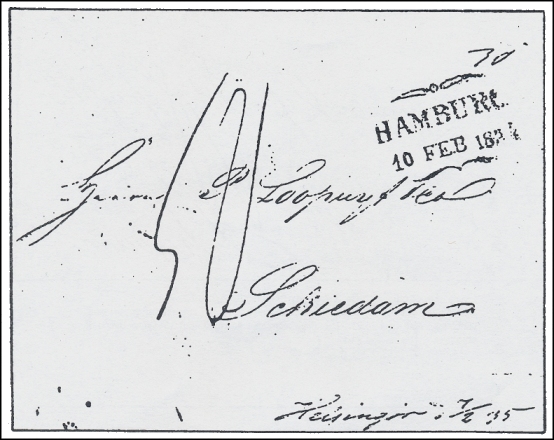 30
HAMBURG
10 FEB 183
Herrn P Loopuyt & Co
40
Schiedam
Helsingör 7/2 35